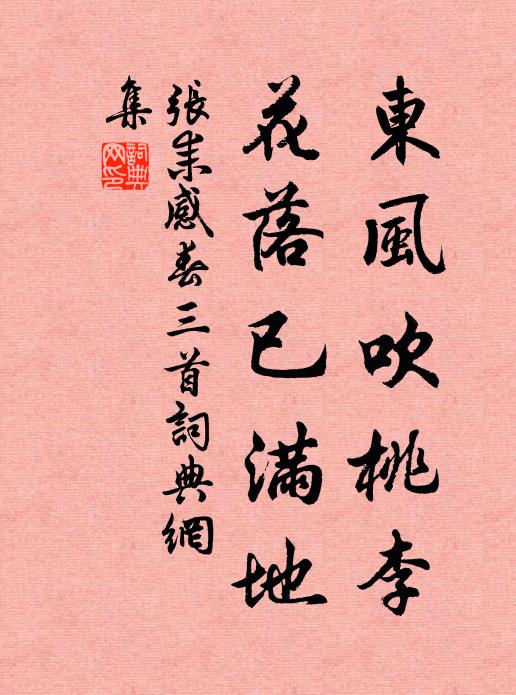 東風吹桃李
花落已滿地
張耒感春三首詞典網
集
詞典
网印